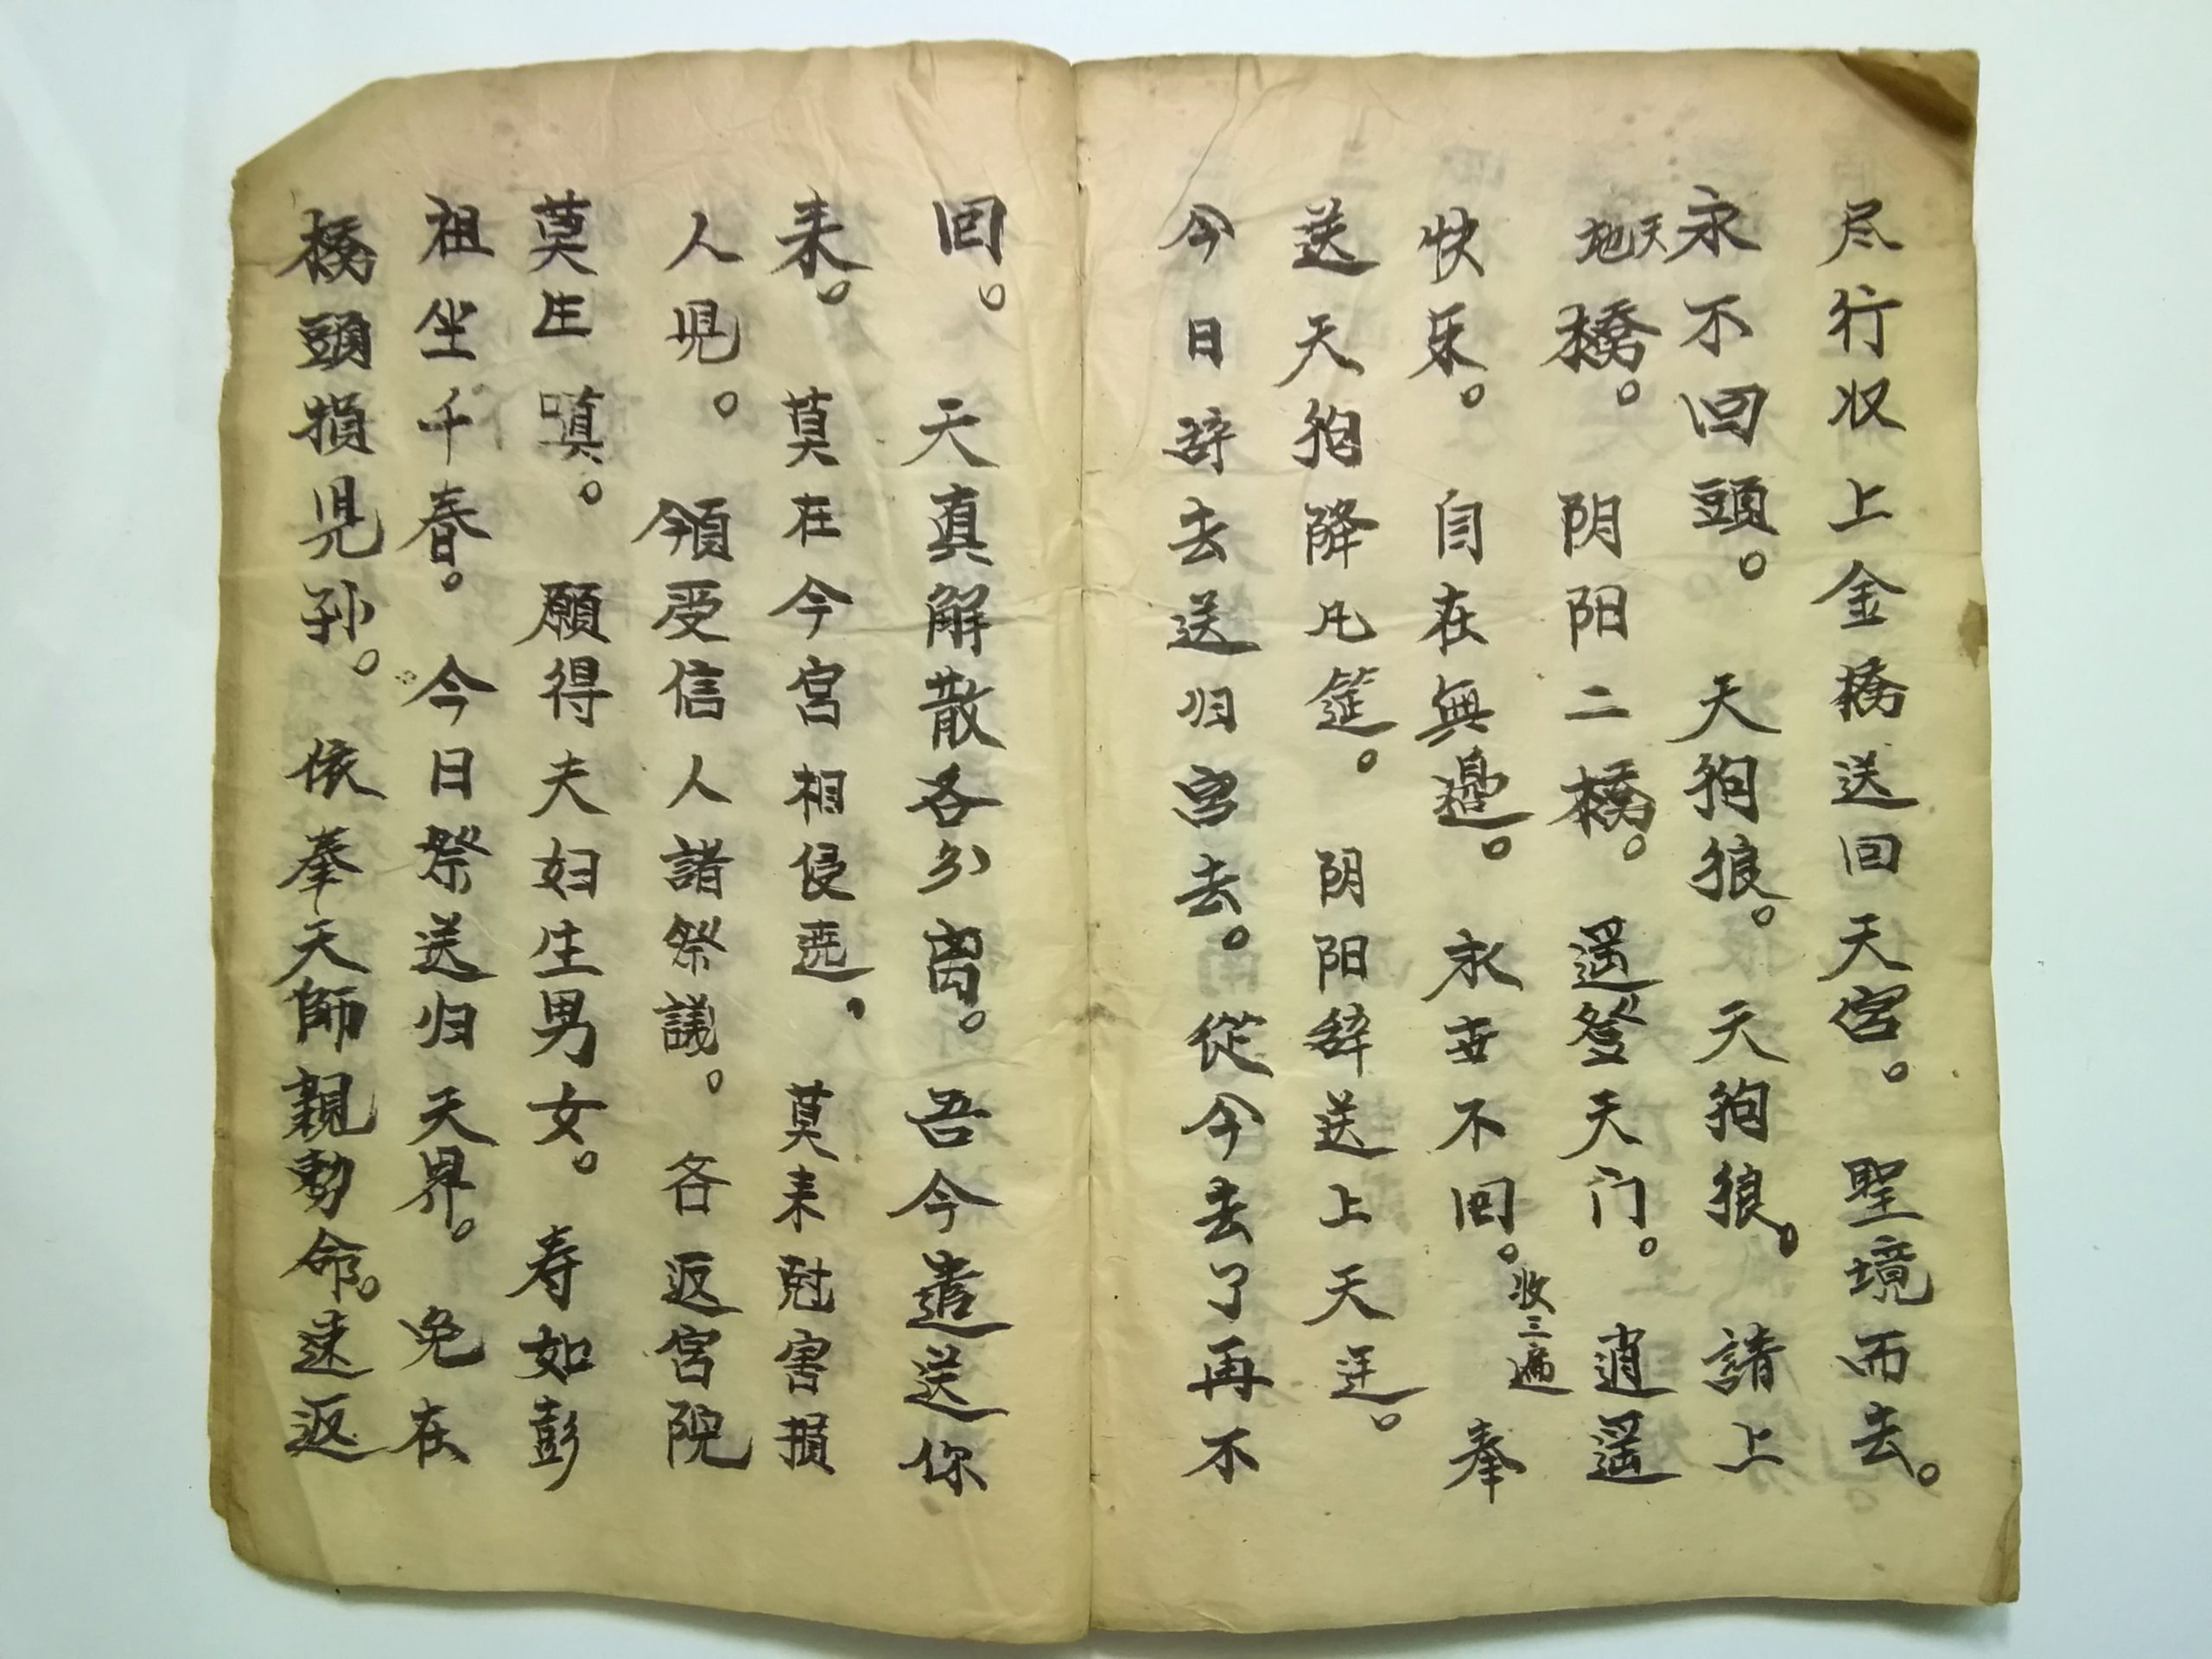 尽行收上金橋送回天宮。聖境而去。
永不回頭。天狗狼。天狗狼。請上
天地橋。阴阳二橋。遥登天门。逍遥
快乐。自在無邊。永世不回。收三遍 奉
送天狗降凡筵。阴阳辞送上天迋。
今日辞去送归宮去。從今去了再不
回。天真解散各分离。吾今遣送你
来。莫在今宮相侵遶。莫来尅害損
人児。領受信人諸祭議。各返宮院
莫生嗔。願得夫妇生男女。寿如彭
祖坐千春。今日祭送归天界。免在
橋頭損児孙。依奉天師親勅命。速返